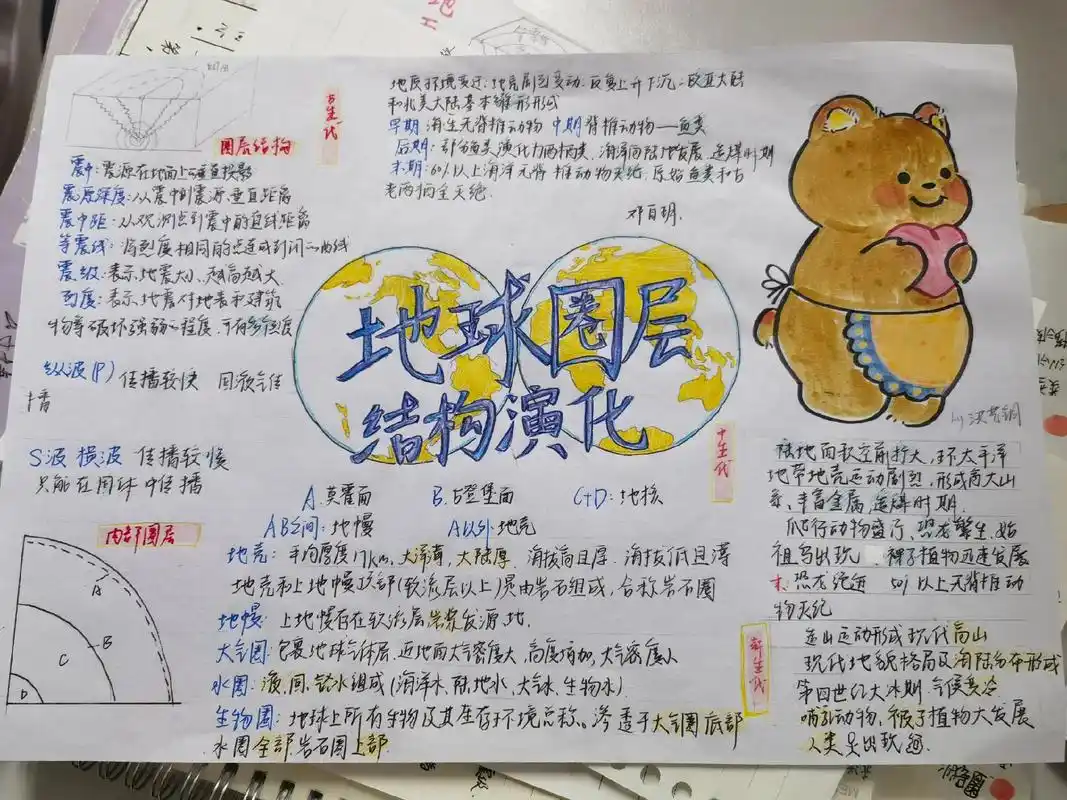 地球圈层
结构演化
古生代
地质环境变迁:地壳剧烈变动.反复上升下沉.欧亚大陆
和北美大陆基本雏形形成
早期:海生无脊椎动物 中期 脊椎动物——鱼类
后期:部分鱼类演化为两栖类,海洋向陆地发展,造煤时期
末期:60%以上海洋无脊椎动物灭绝.原始鱼类和古
老两栖全灭绝.
圈层结构
震中:震源在地面上垂直投影
震源深度:从震中到震源垂直距离
震中距:从观测点到震中的直线距离
等震线:将烈度相同的点连成封闭的曲线
震级:表示地震大小、越高越大.
烈度:表示地震对地表和建筑
物等破坏强弱的程度.可有多烈度
纵波(P) 传播较快 固液气传
播
S波 横波 传播较慢
只能在固体中传播
A.莫霍面 B.古登堡面 C+D:地核
AB之间:地幔 A以外:地壳
内部圈层
A
B
C
D
地壳:平均厚度17km,大洋薄,大陆厚.海拔高且厚.海拔低且薄
地壳和上地幔顶部(软流层以上)是由岩石组成,合称岩石圈
地幔:上地幔存在软流层岩浆发源地.
大气圈:包裹地球气体层.近地面大气密度大,高度增加,大气密度小
水圈:液、固、气水组成(海洋水、陆地水、大气水、生物水)
生物圈:地球上所有生物及其生存环境总称。渗透于大气圈底部
水圈全部岩石圈上部.
中生代
陆地面积空前扩大,环太平洋
地带地壳运动剧烈,形成高大山
系、丰富金属,造煤时期.
爬行动物盛行、恐龙繁生、始
祖鸟出现 裸子植物迅速发展
末:恐龙绝迹 50%以上无脊椎动
物灭绝
新生代
造山运动形成现代高山
现代地貌格局及海陆分布形成
第四世纪大冰期.气候变冷
哺乳动物、被子植物大发展
人类是出现